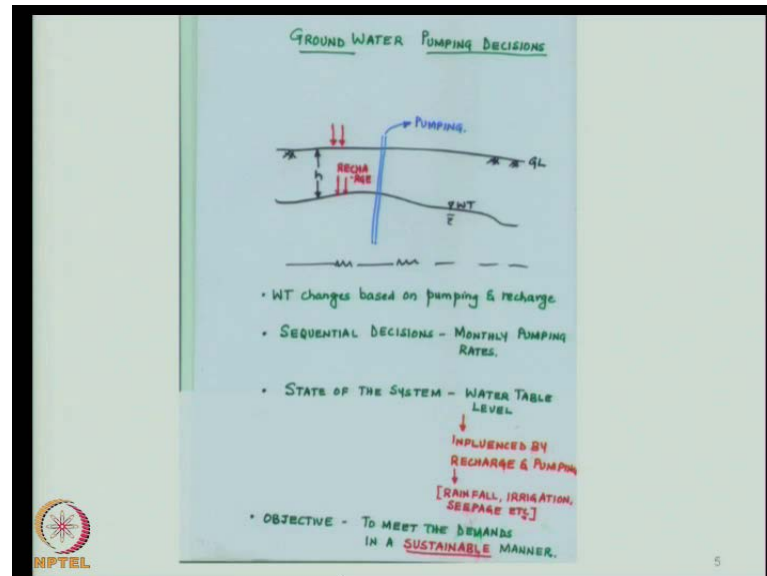 GROUND WATER PUMPING DECISIONS
PUMPING.
GL
h
RECHA
-RGE
WT
• WT changes based on pumping & recharge
• SEQUENTIAL DECISIONS - MONTHLY PUMPING
RATES.
• STATE OF THE SYSTEM - WATER TABLE
LEVEL
INFLUENCED BY
RECHARGE & PUMPING
[RAINFALL, IRRIGATION,
SEEPAGE ETC.]
• OBJECTIVE - TO MEET THE DEMANDS
IN A SUSTAINABLE MANNER.
NPTEL
5